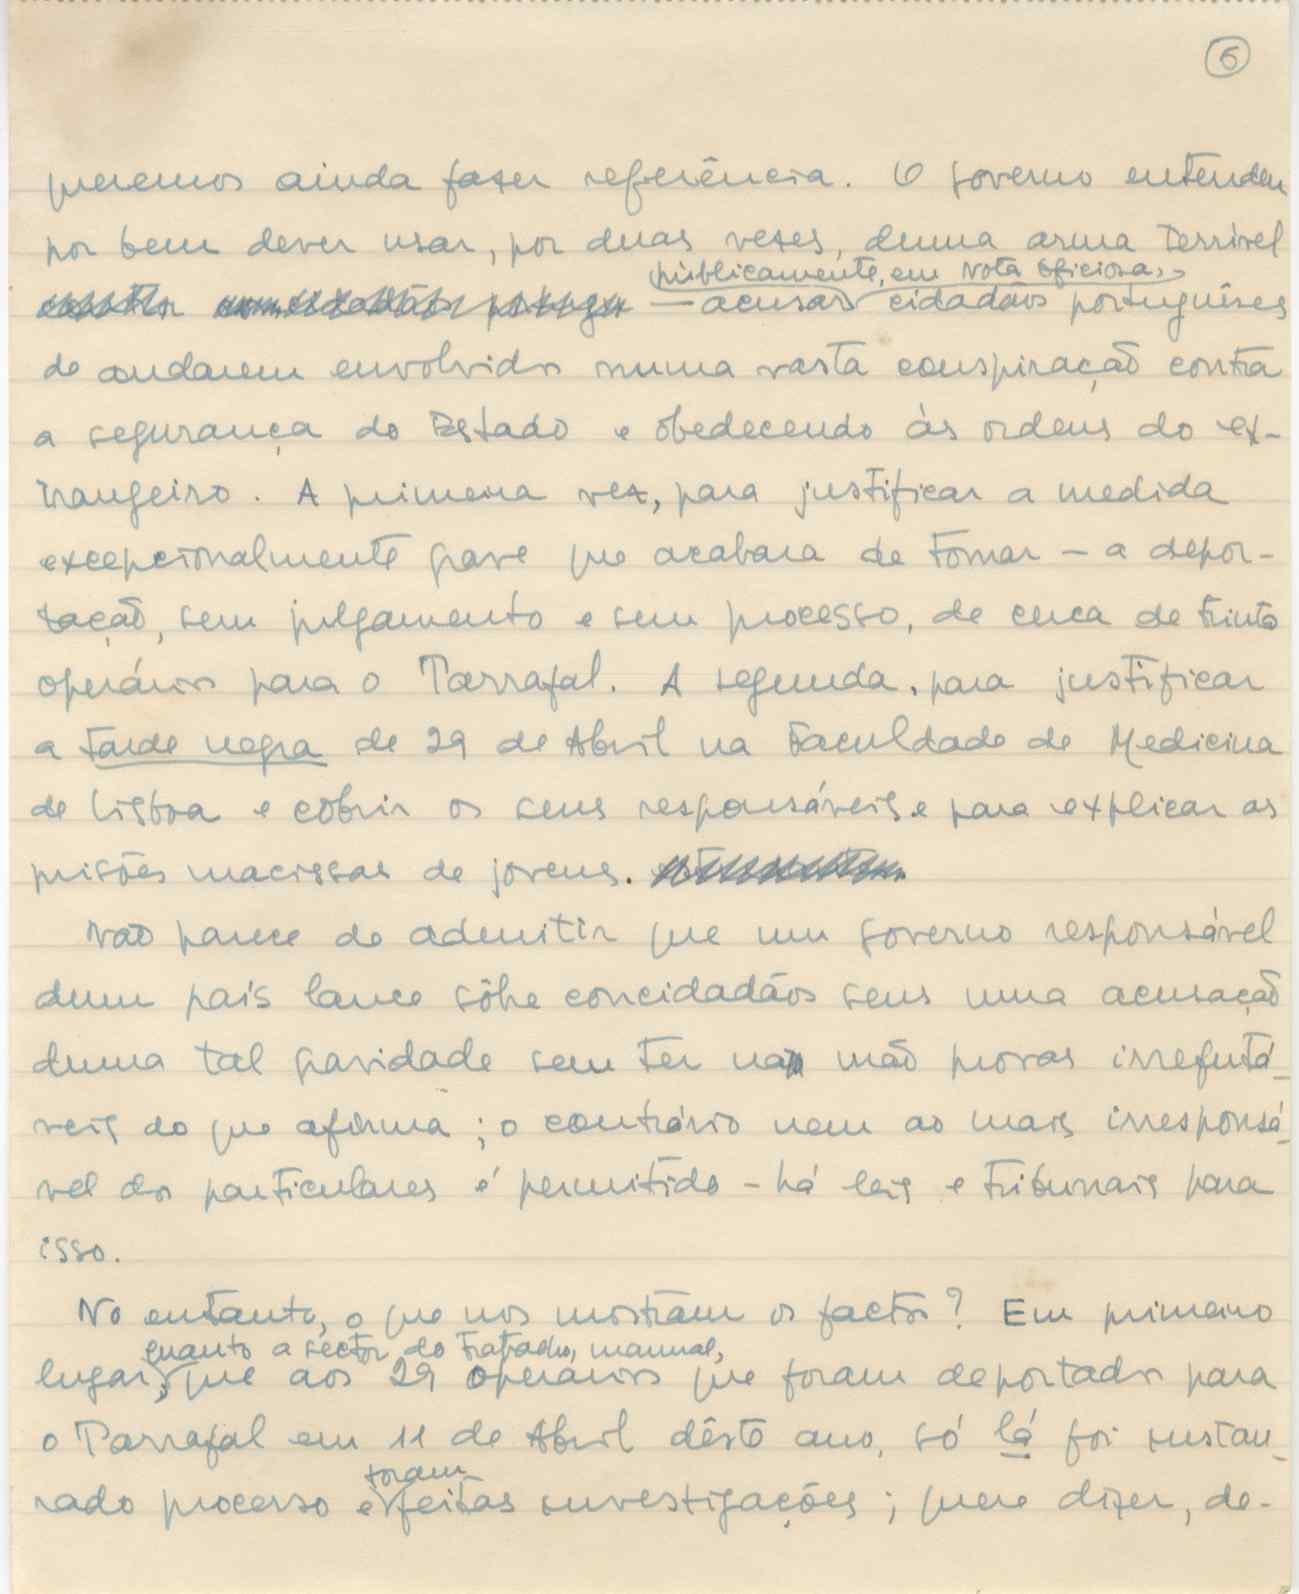 6
queremos ainda fazer referência. O governo entendeu
por bem dever usar, por duas vezes, duma arma terrível
públicamente, em nota oficiosa,
— acusar cidadãos portuguêses
de andarem envolvidos numa vasta conspiração contra
a segurança do Estado e obedecendo às ordens do ex-
trangeiro. A primeira vez, para justificar a medida
excepcionalmente grave que acabara de tomar — a depor-
tação, sem julgamento e sem processo, de cerca de trinta
operários para o Tarrafal. A segunda, para justificar
a tarde negra de 29 de Abril na Faculdade de Medicina
de Lisboa e cobrir os seus responsáveis e para explicar as
prisões macissas de jovens.
Não parece de admitir que um governo responsável
dum país lance sôbre concidadãos seus uma acusação
duma tal gravidade sem ter na mão provas irrefutá-
veis do que afirma; o contrário nem ao mais irresponsá-
vel dos particulares é permitido — há leis e tribunais para
isso.
No entanto, o que nos mostram os factos? Em primeiro
quanto a sector do trabalho manual,
lugar, que aos 29 operários que foram deportados para
o Tarrafal em 11 de Abril dêste ano, só lá foi instau-
foram
rado processo e feitas investigações; quere dizer, de-